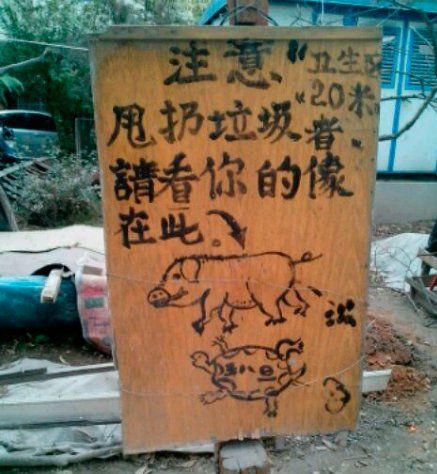 注意“卫生区
“20米
甩扔垃圾者”
請看你的像
在此。
王八旦